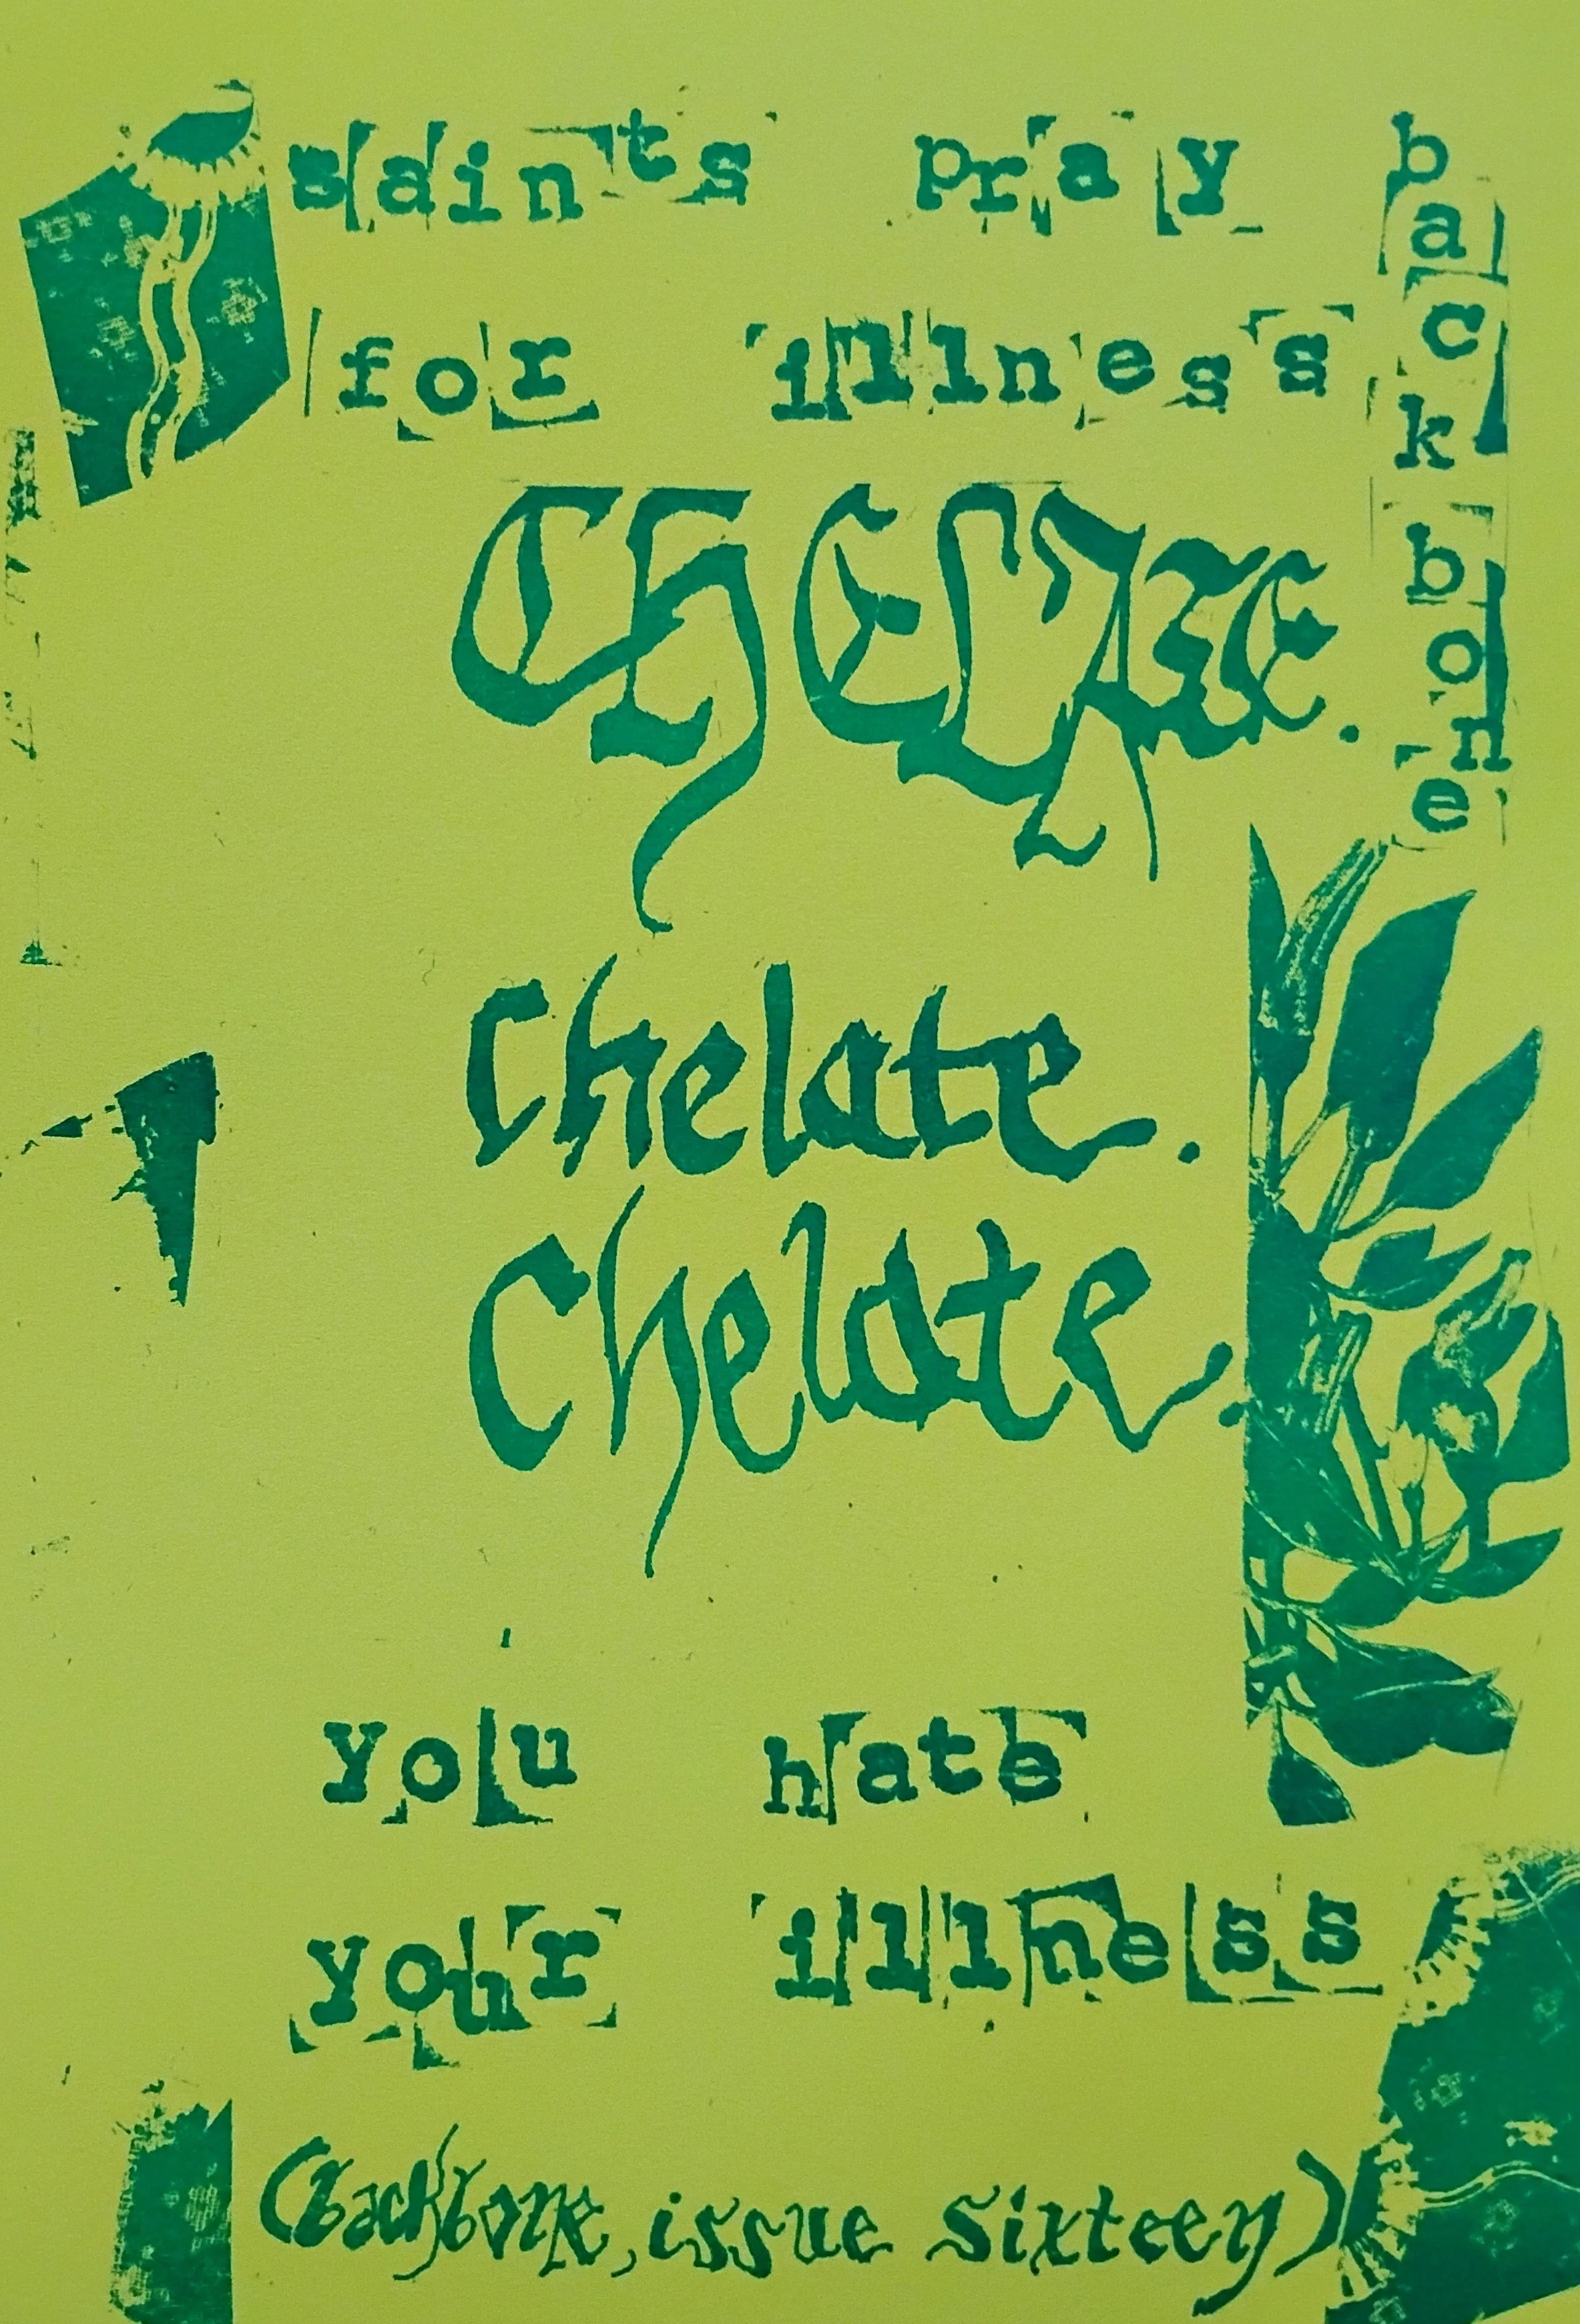 saints pray
for illness
backbone
CHELATE.
Chelate.
Chelate.
you hate
your illness
(backbone, issue sixteen)